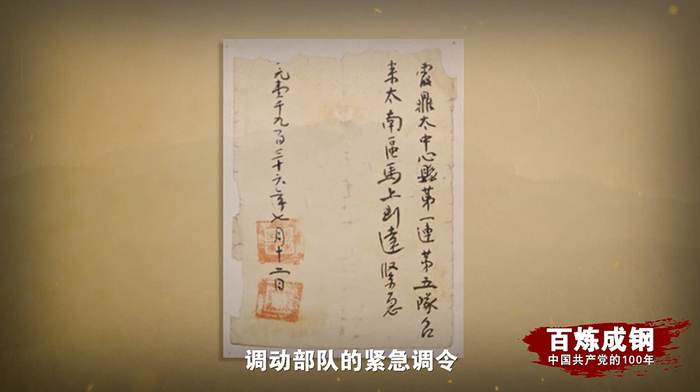 霞鼎太中心縣第一連第五隊召
来太南區馬上到達緊急
元壹千九百三十六年七月十二日
调动部队的紧急调令
百炼成钢
中国共产党的100年